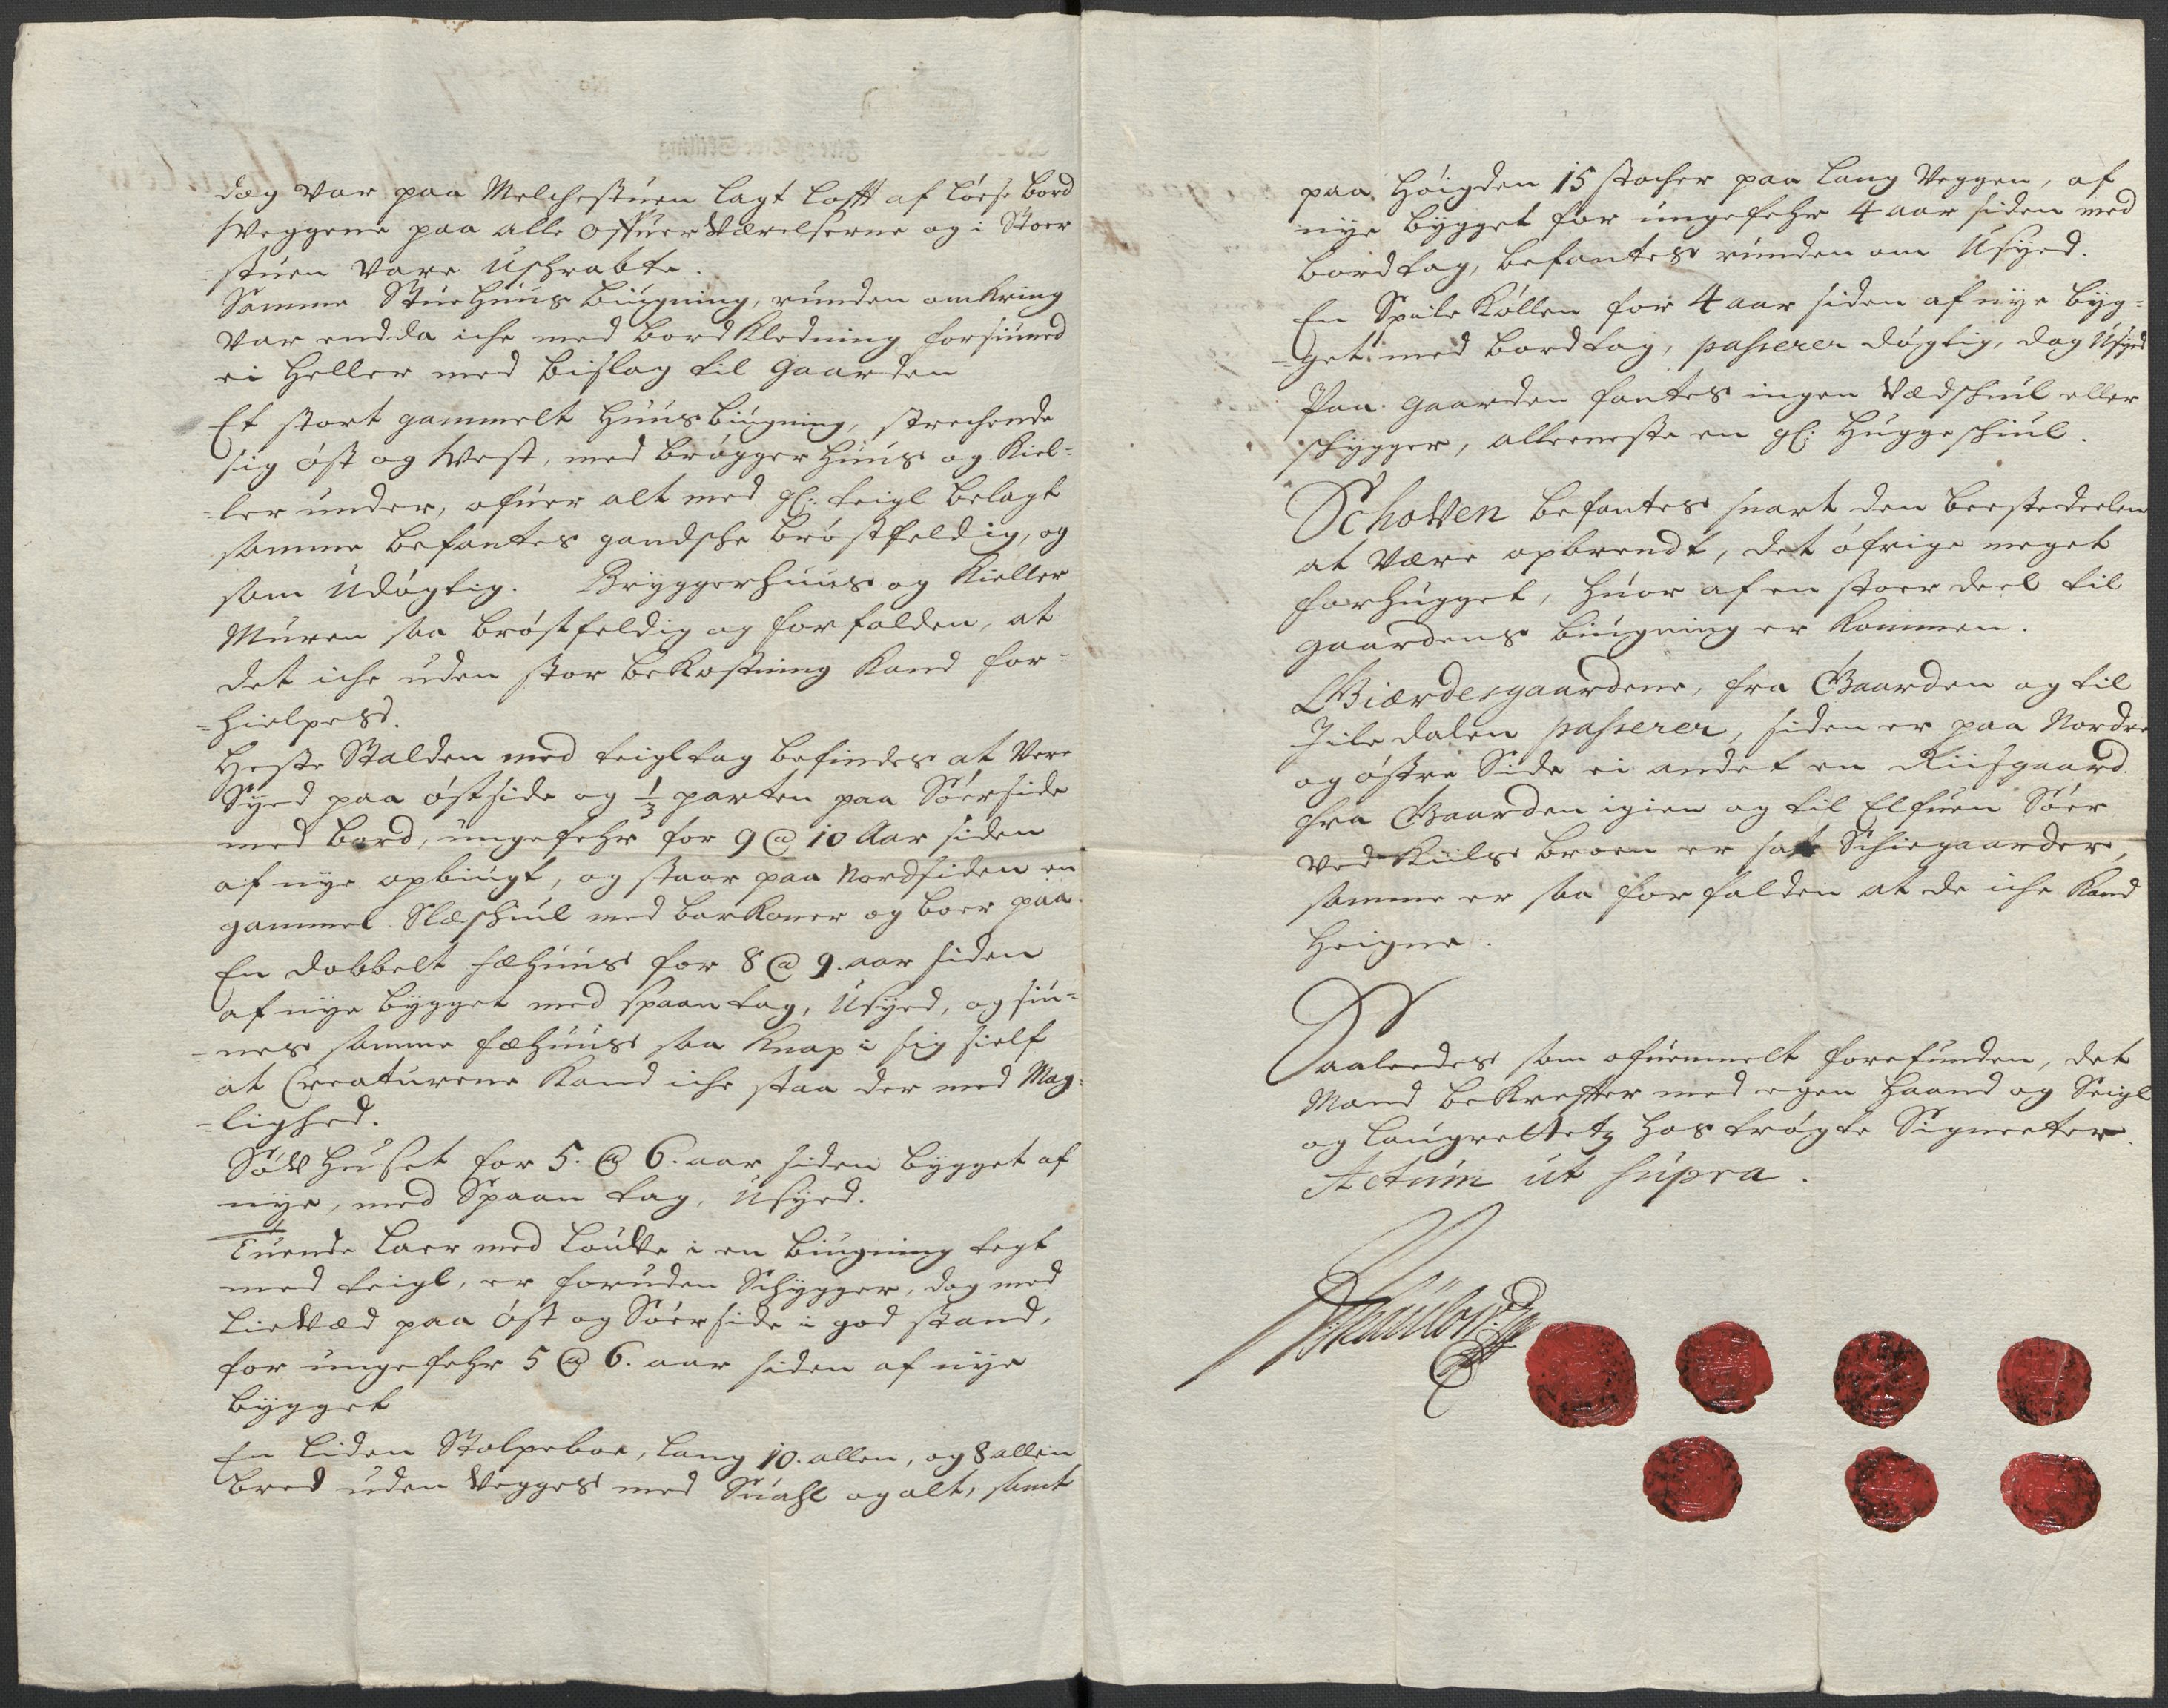 dog var paa Melchestuen lagt lofft af löese bord
Weggene paa alle offuer Værelserne og i Stoer
stuen vare uschrabte.
Samme Stuehuus biugning, runden omkring
var endda iche med bord Kledning forsiuned
ei heller med bislag til gaarden
Et stort gammelt huus biugning, strechende
sig öst og West, med brögger huus og Kiel-
-ler under, ofuer alt med gl: teigl belagt
samme befantes gandsche bröstfeldig, og
som udögtig. Bryggerhuus og Kieller
Muren saa bröstfeldig og forfalden, at
det iche uden stor bekostning kand for-
-hielpes.
Heste Stalden med teigltag befindes at vere
Syed paa östside og 1/3 parten paa Söerside
med bord, ungefehr for 9 @ 10 Aar siden
af nye opbiugt, og staar paa Nordsiden en
gammel Slæschiul med barkoner og boer paa.
En dobbelt fæhuus for 8 @ 9. aar siden
af nye bygget med spaantag, Usyed, og siu-
-nes samme fæhuus saa knap i sig sielf
at Creaturene kand iche staa der med Mag-
-lighed.
Söd Huset for 5. @ 6. aar siden bygget af
nye, med Spaan tag, Usyed.
Tuende laer med loude i en biugning tegt
med teigl, er foruden Schygger, dog med
Lievæd paa öst og Söerside i god stand,
for ungefehr 5 @ 6. aar siden af nye
bygget
En liden Stolpeboe, lang 10. allen, og 8 allen
bred uden Vegges med Suahl og alt, samt
paa höigden 15 stocher paa lang Veggen, af
nye bygget for ungefehr 4 aar siden med
bordtag, befantes runden om Usyed.
En Spile Köllen for 4 aar siden af nye byg-
-get med bordtag, passerer dögtig, dog Usyed
Paa gaarden fantes ingen Vædschiul eller
schygger, alleeneste en gl: Huggeschiul.
Schoven befantes snart den beestedeelen
at Være opbrendt, det öfrige meget
forhugget, huor af en stoer deel til
gaardens biugning er kommen.
Giærdesgaardene, fra Gaarden og til
Jiledalen passerer, siden er paa Nordre
og östre Side ei andet en Riisgaard.
fra Gaarden igien og til Elfuen Söer
ved Kiilse broen er satt Schiegaarder,
samme er saa forfalden at de iche kand
heigne.
Saaleedes som ofuenmelt forefunden, det
Mand bekreffter med egen haand og Seigl
og laugrettetz hos trögte Signeeter.
Actum ut supra.